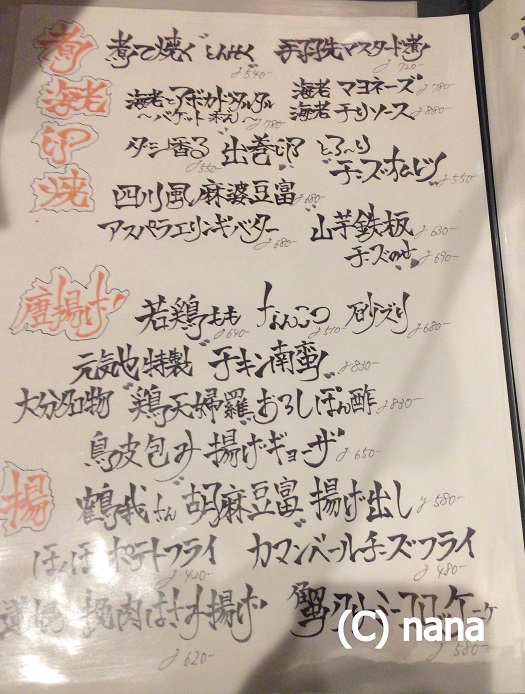 煮 煮て焼く とんそく 手羽先マスタード煮
540- 720-
海老 海老とアボカドタルタル 海老マヨネーズ 780-
〜バゲット添え〜 780- 海老チリソース 880-
卵 ダシ香る 出巻き卵 とろ〜り
550- チーズオムレツ 550-
焼 四川風麻婆豆富 680-
アスパラエリンギバター 680- 山芋鉄板 630-
チーズのせ 690-
唐揚げ 若鶏もも 640- なんこつ 570- 砂ズリ 680-
元気や特製 チキン南蛮 830-
大分名物 鶏天婦羅 おろしぽん酢 830-
鳥皮包み 揚げギョーザ 650-
揚 鶴我さん 胡麻豆富 揚げ出し 580-
ほっほポテトフライ カマンベールチーズフライ
420- 480-
挽肉はさみ揚げ 蟹クリーミーコロッケ
620- 580-
(C) nana